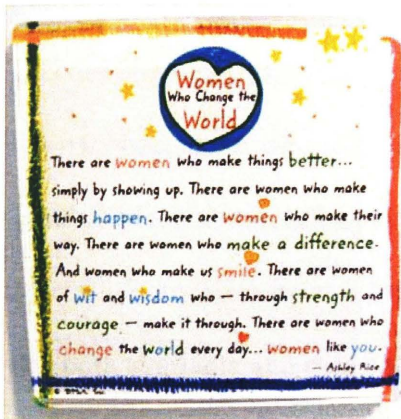 Women
Who Change the
World
There are women who make things better...
simply by showing up. There are women who make
things happen. There are women who make their
way. There are women who make a difference.
And women who make us smile. There are women
of wit and wisdom who — through strength and
courage — make it through. There are women who
change the world every day... women like you.
— Ashley Rice